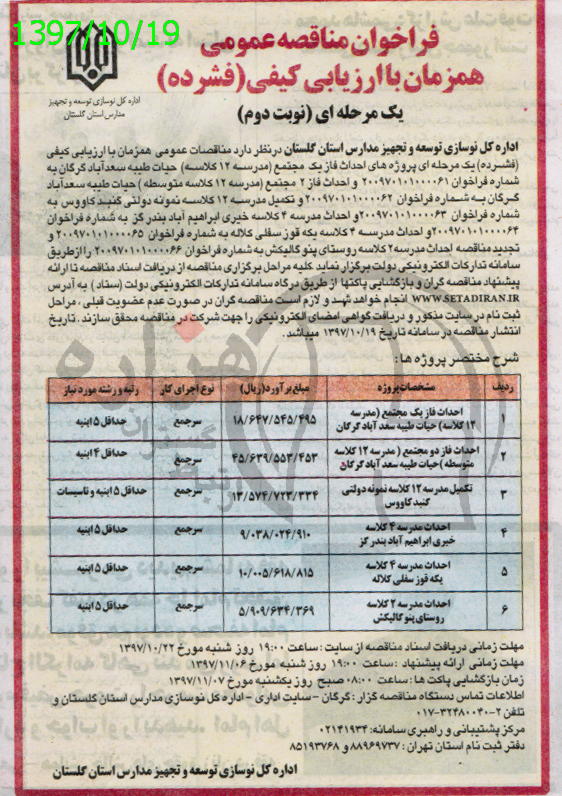 1397/10/19
فراخوان مناقصه عمومی
همزمان با ارزیابی کیفی (فشرده)
یک مرحله ای (نوبت دوم)
اداره کل نوسازی توسعه و تجهیز
مدارس استان گلستان
اداره کل نوسازی توسعه و تجهیز مدارس استان گلستان در نظر دارد مناقصات عمومی همزمان با ارزیابی کیفی
(فشرده) یک مرحله ای پروژه های احداث فاز یک مجتمع (مدرسه ۱۲ کلاسه) حیات طیبه سعدآباد گرگان به
شماره فراخوان ۲۰۰۹۷۰۱۰۱۰۰۰۰۶۱ و احداث فاز ۲ مجتمع (مدرسه ۱۲ کلاسه متوسطه) حیات طیبه سعدآباد
گرگان به شماره فراخوان ۲۰۰۹۷۰۱۰۱۰۰۰۰۶۲ و تکمیل مدرسه ۱۲ کلاسه نمونه دولتی گنبد کاووس به
شماره فراخوان ۲۰۰۹۷۰۱۰۱۰۰۰۰۶۳ و احداث مدرسه ۴ کلاسه خیری ابراهیم آباد بندر گز به شماره فراخوان
۲۰۰۹۷۰۱۰۱۰۰۰۰۶۴ و احداث مدرسه ۴ کلاسه یکه قوز سفلی کلاله به شماره فراخوان ۲۰۰۹۷۰۱۰۱۰۰۰۰۶۵ و
تجدید مناقصه احداث مدرسه ۲ کلاسه روستای پنو گالیکش به شماره فراخوان ۲۰۰۹۷۰۱۰۱۰۰۰۰۶۶ را از طریق
سامانه تدارکات الکترونیکی دولت برگزار نماید کلیه مراحل برگزاری مناقصه از دریافت اسناد مناقصه تا ارائه
پیشنهاد مناقصه گران و بازگشایی پاکتها از طریق درگاه سامانه تدارکات الکترونیکی دولت (ستاد) به آدرس
WWW.SETADIRAN.IR انجام خواهد شد و لازم است مناقصه گران در صورت عدم عضویت قبلی، مراحل
ثبت نام در سایت مذکور و دریافت گواهی امضای الکترونیکی را جهت شرکت در مناقصه محقق سازند. تاریخ
انتشار مناقصه در سامانه تاریخ ۱۳۹۷/۱۰/۱۹ میباشد.
شرح مختصر پروژه ها:
ردیف مشخصات پروژه مبلغ برآورد (ریال) نوع اجرای کار رتبه و رشته مورد نیاز
۱ احداث فاز یک مجتمع (مدرسه
۱۲ کلاسه) حیات طیبه سعد آباد گرگان ۱۸/۶۴۷/۵۴۵/۴۹۵ سرجمع حداقل ۵ ابنیه
۲ احداث فاز دو مجتمع (مدرسه ۱۲ کلاسه
متوسطه) حیات طیبه سعد آباد گرگان ۴۵/۶۳۹/۵۵۳/۴۵۳ سرجمع حداقل ۴ ابنیه
۳ تکمیل مدرسه ۱۲ کلاسه نمونه دولتی
گنبد کاووس ۱۳/۵۷۴/۷۲۳/۳۳۴ سرجمع حداقل ۵ ابنیه و تاسیسات
۴ احداث مدرسه ۴ کلاسه
خیری ابراهیم آباد بندر گز ۹/۰۳۸/۰۲۴/۹۱۰ سرجمع حداقل ۵ ابنیه
۵ احداث مدرسه ۴ کلاسه
یکه قوز سفلی کلاله ۱۰/۰۰۵/۶۱۸/۸۱۵ سرجمع حداقل ۵ ابنیه
۶ احداث مدرسه ۲ کلاسه
روستای پنو گالیکش ۵/۹۰۹/۶۳۴/۳۶۹ سرجمع حداقل ۵ ابنیه
مهلت زمانی دریافت اسناد مناقصه از سایت: ساعت ۱۹:۰۰ روز شنبه مورخ ۱۳۹۷/۱۰/۲۲
مهلت زمانی ارائه پیشنهاد: ساعت ۱۹:۰۰ روز شنبه مورخ ۱۳۹۷/۱۱/۰۶
زمان بازگشایی پاکت ها: ساعت ۰۸:۰۰ صبح روز یکشنبه مورخ ۱۳۹۷/۱۱/۰۷
اطلاعات تماس دستگاه مناقصه گزار: گرگان - سایت اداری - اداره کل نوسازی مدارس استان گلستان و
تلفن ۲-۳۲۴۸۰۰۴۰-۰۱۷
مرکز پشتیبانی و راهبری سامانه: ۰۲۱۴۱۹۳۴
دفتر ثبت نام استان تهران: ۸۸۹۶۹۷۳۷ و ۸۵۱۹۳۷۶۸
اداره کل نوسازی توسعه و تجهیز مدارس استان گلستان